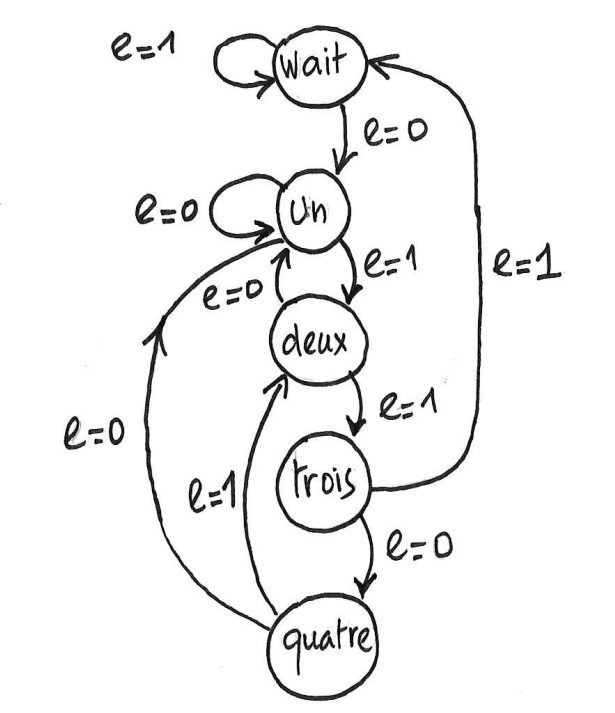 e=1
wait
e=0
e=0
un
e=1
e=0
e=1
deux
e=1
e=0
e=1
trois
e=0
quatre